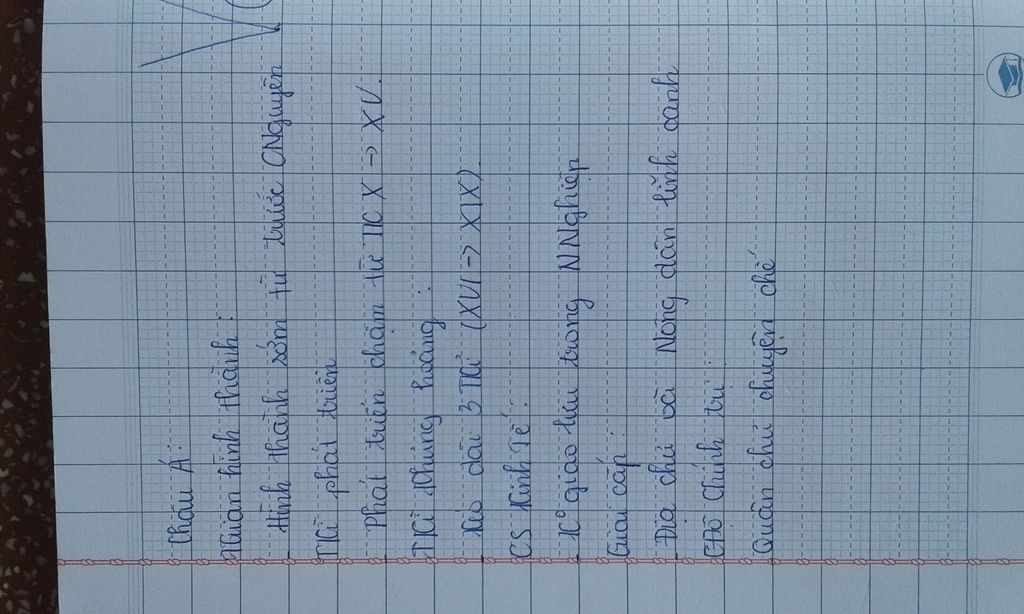 Châu Á:
Hình thành sớm từ trước CNguyên
TKì phát triển
Phát triển chậm từ TK X -> XV.
TKì Khủng hoảng:
Kéo dài 3 TKỉ (XVI -> XIX).
CS Kinh Tế:
K° giao lưu trong NNghiệp
Giai cấp:
Địa chủ và Nông dân lĩnh canh
CĐộ Chính trị:
Quân chủ chuyện chế